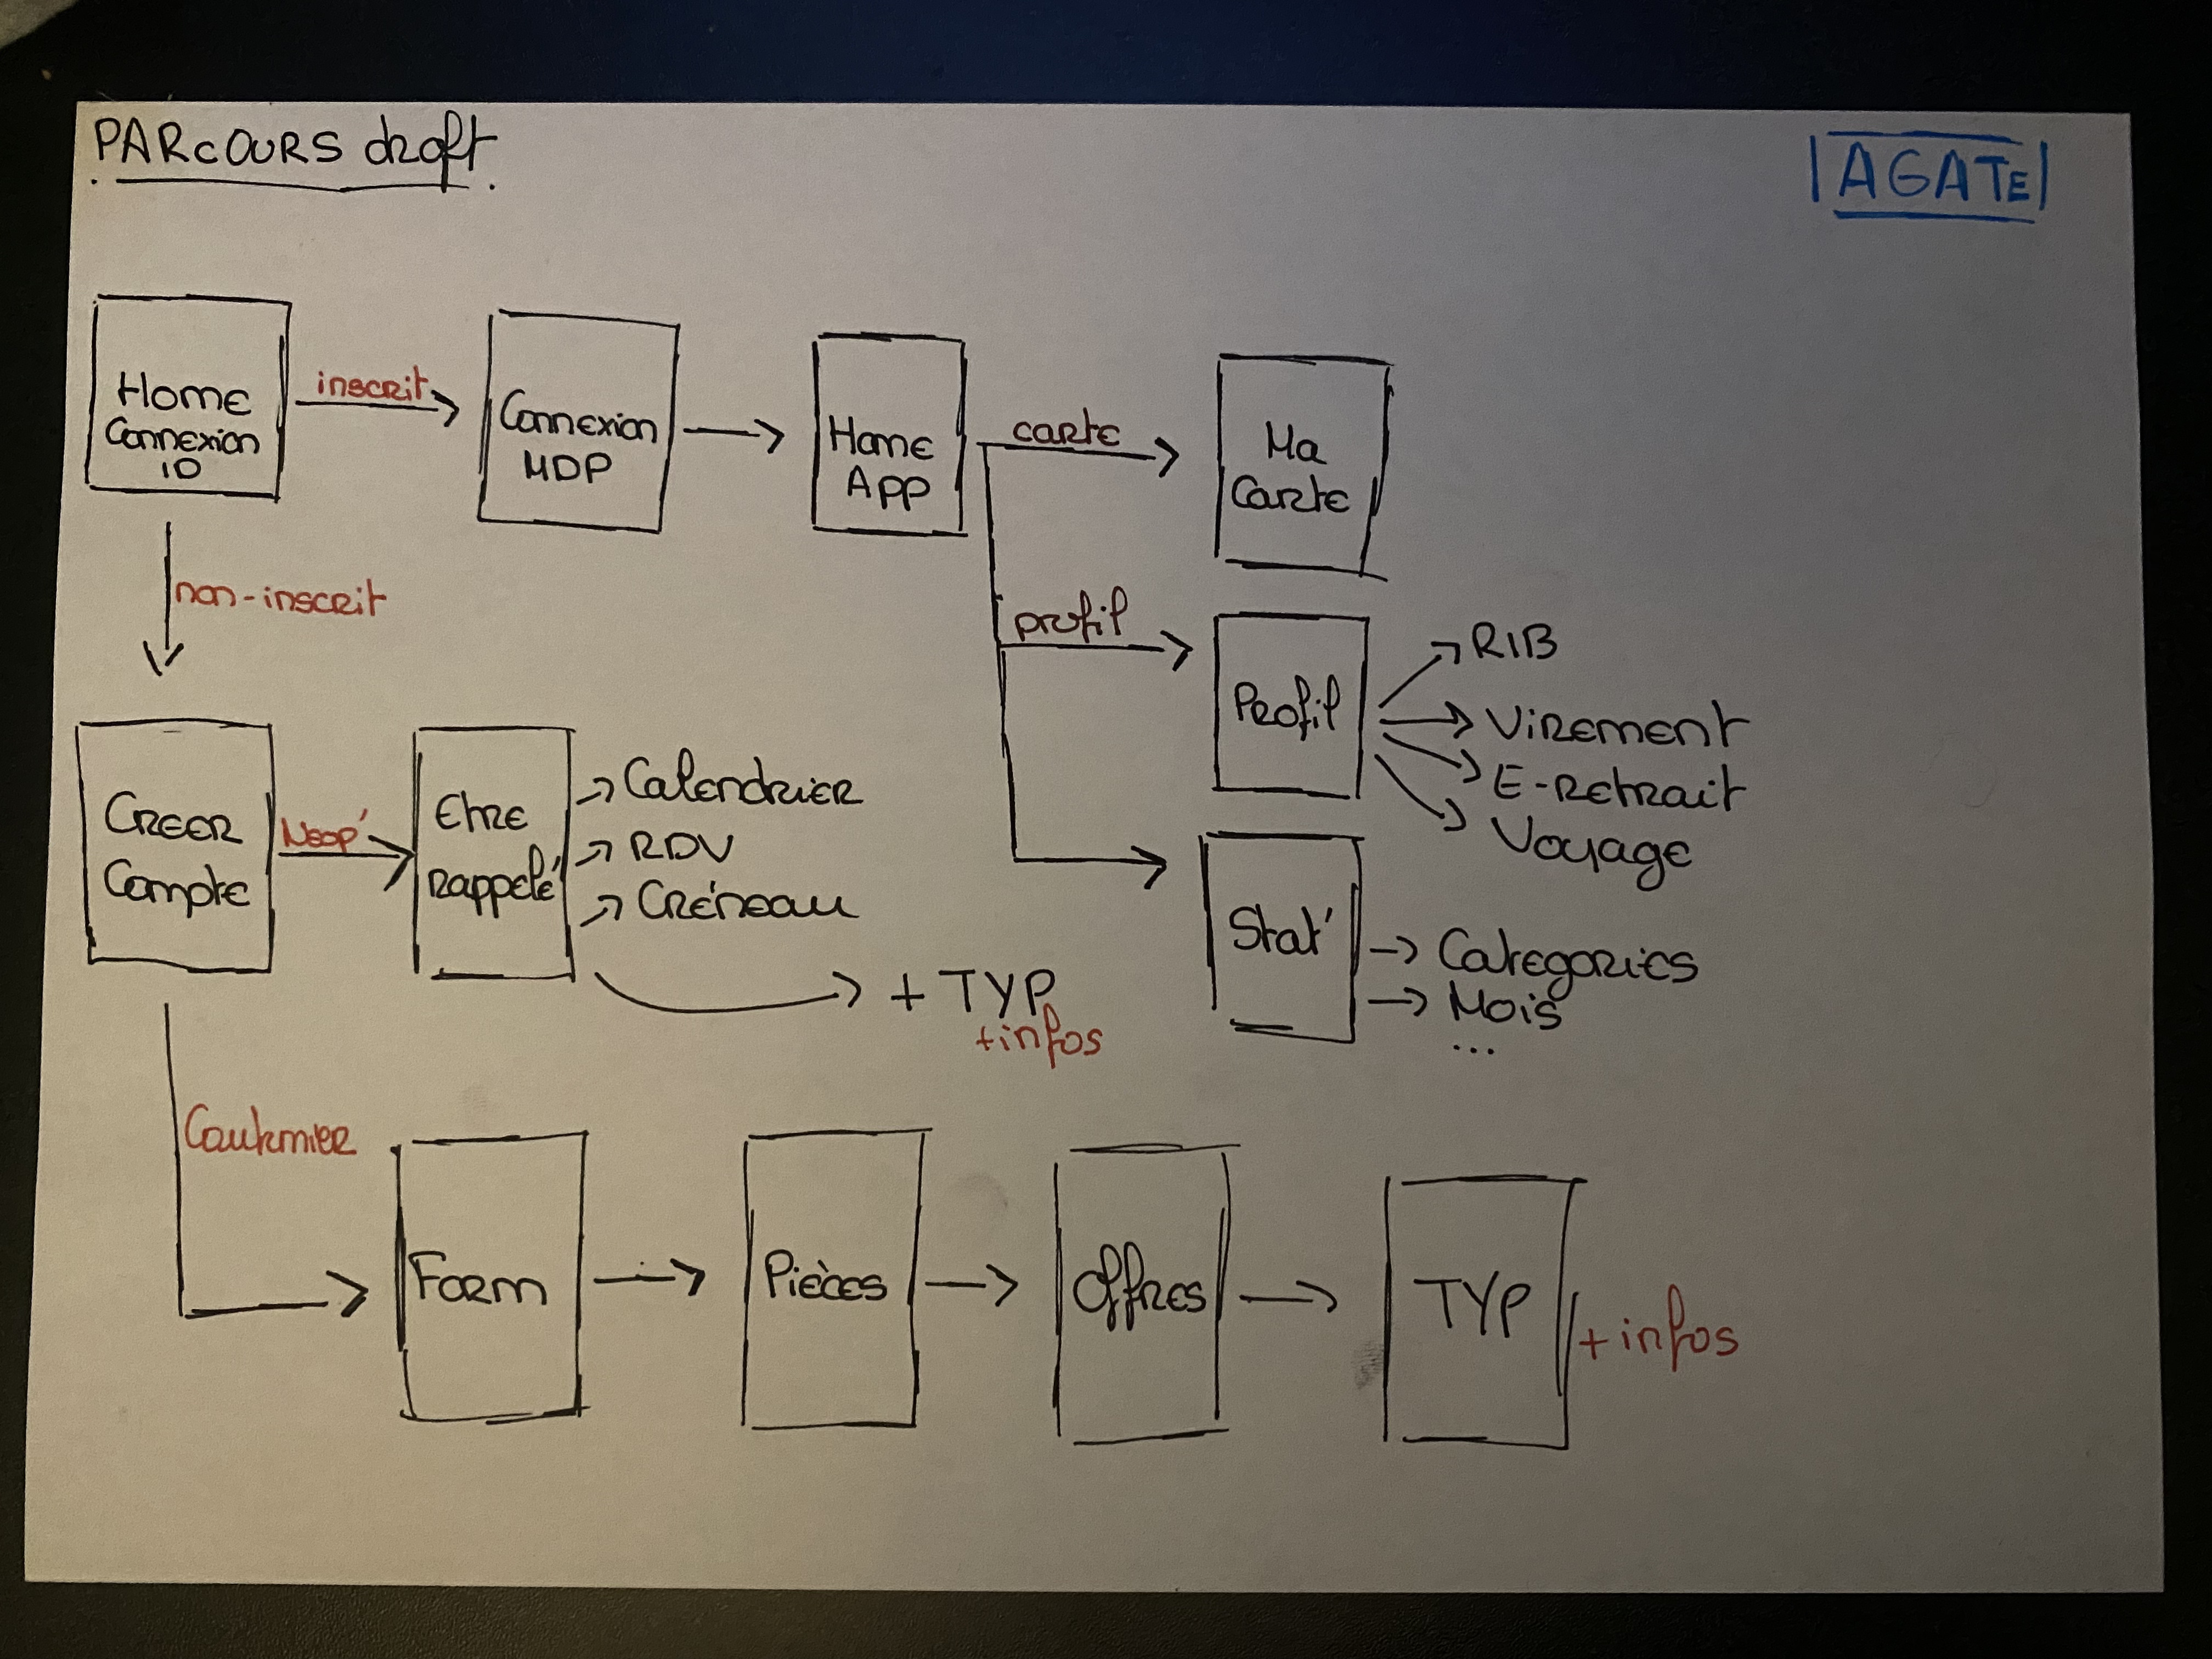 PARCOURS draft
|AGATE|
Home
Connexion
ID
inscrit
Connexion
MDP
Home
App
carte
Ma
Carte
non-inscrit
profil
Profil
RIB
Virement
E-Retrait
Voyage
Créer
Compte
Etre
rappelé
Calendrier
RDV
Créneau
+ TYP
+infos
Stat'
Categories
Mois
...
Form
Pièces
Offres
TYP
+ infos